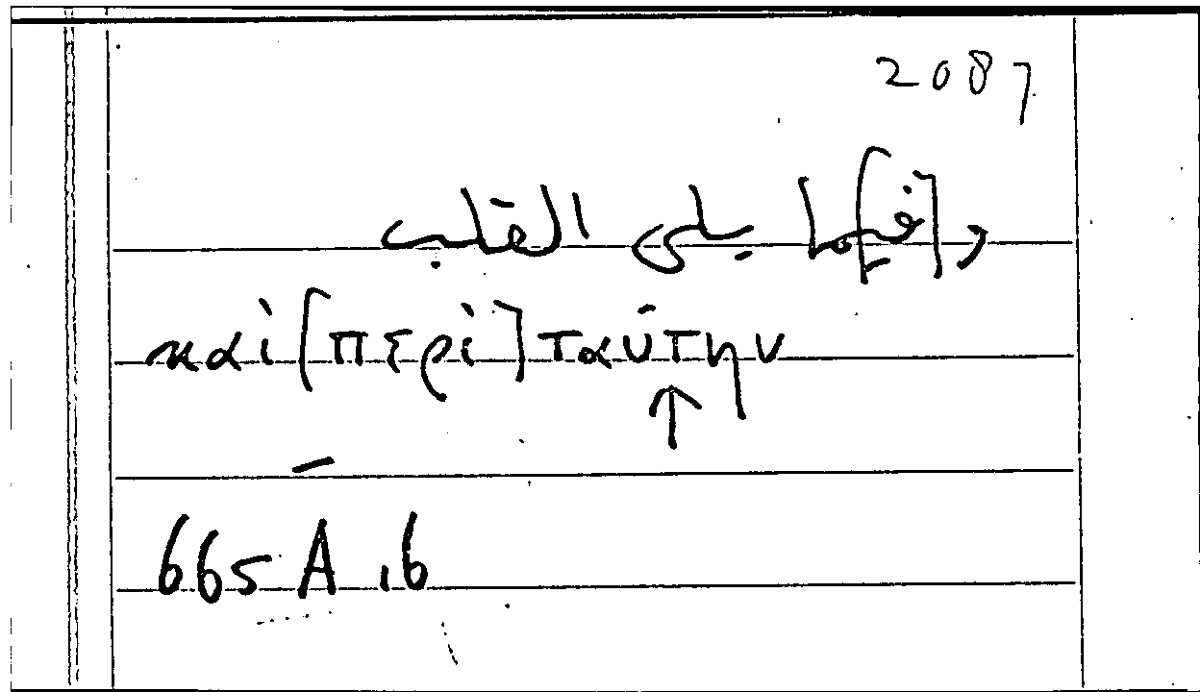 2087
و[فيـ]ـما يلى القلب
καὶ [περὶ] ταύτην
↑
665 A 16